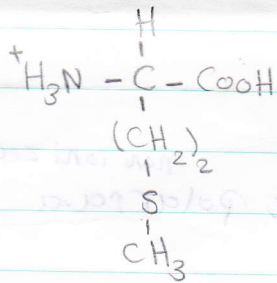 H
+H₃N - C - COOH
(CH₂)₂
S
CH₃